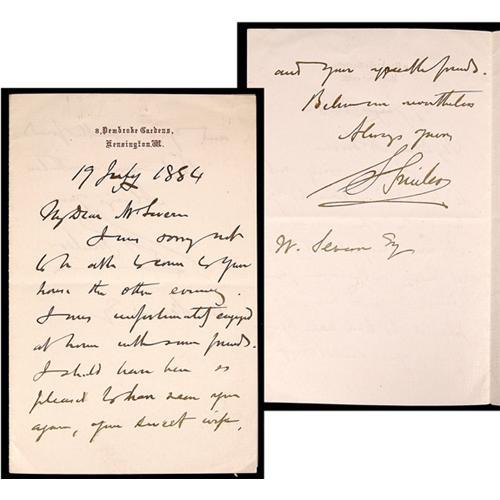 8, Pembroke Gardens,
Kensington, W.
19 July 1884
My dear Mr Severn
I was sorry not
to be able to come to your
house the other evening.
I was unfortunately engaged
at home with some friends.
I should have been so
pleased to have seen you
again, your sweet wife,
and your friends.
Believe me nevertheless
Always yours
S Smiles
W. Severn Esq